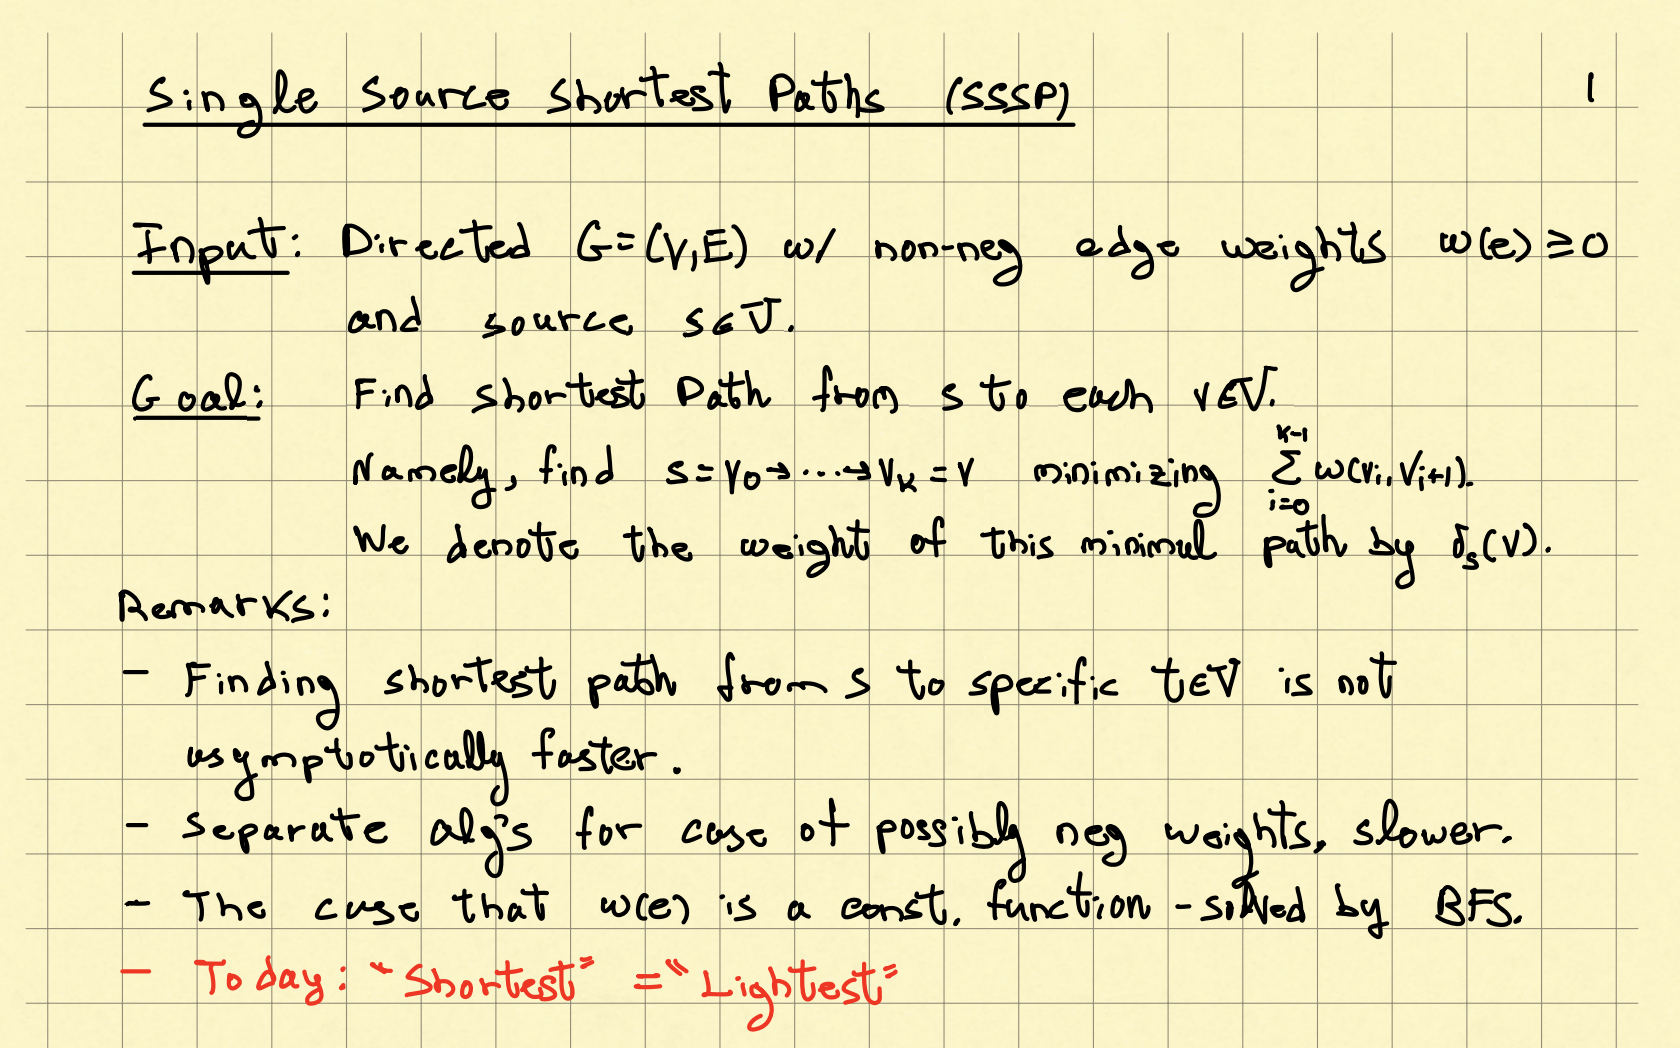 Single Source Shortest Paths (SSSP) 1
Input: Directed G=(V,E) w/ non-neg edge weights w(e)≥0
and source s∈V.
Goal: Find shortest Path from s to each v∈V.
Namely, find s=v₀→⋯→vₖ=v minimizing ∑_{i=0}^{k-1} w(vᵢ,vᵢ₊₁).
We denote the weight of this minimal path by δₛ(v).
Remarks:
- Finding shortest path from s to specific t∈V is not
asymptotically faster.
- Separate alg's for case of possibly neg weights, slower.
- The case that w(e) is a const. function - solved by BFS.
- Today: "Shortest" = "Lightest"